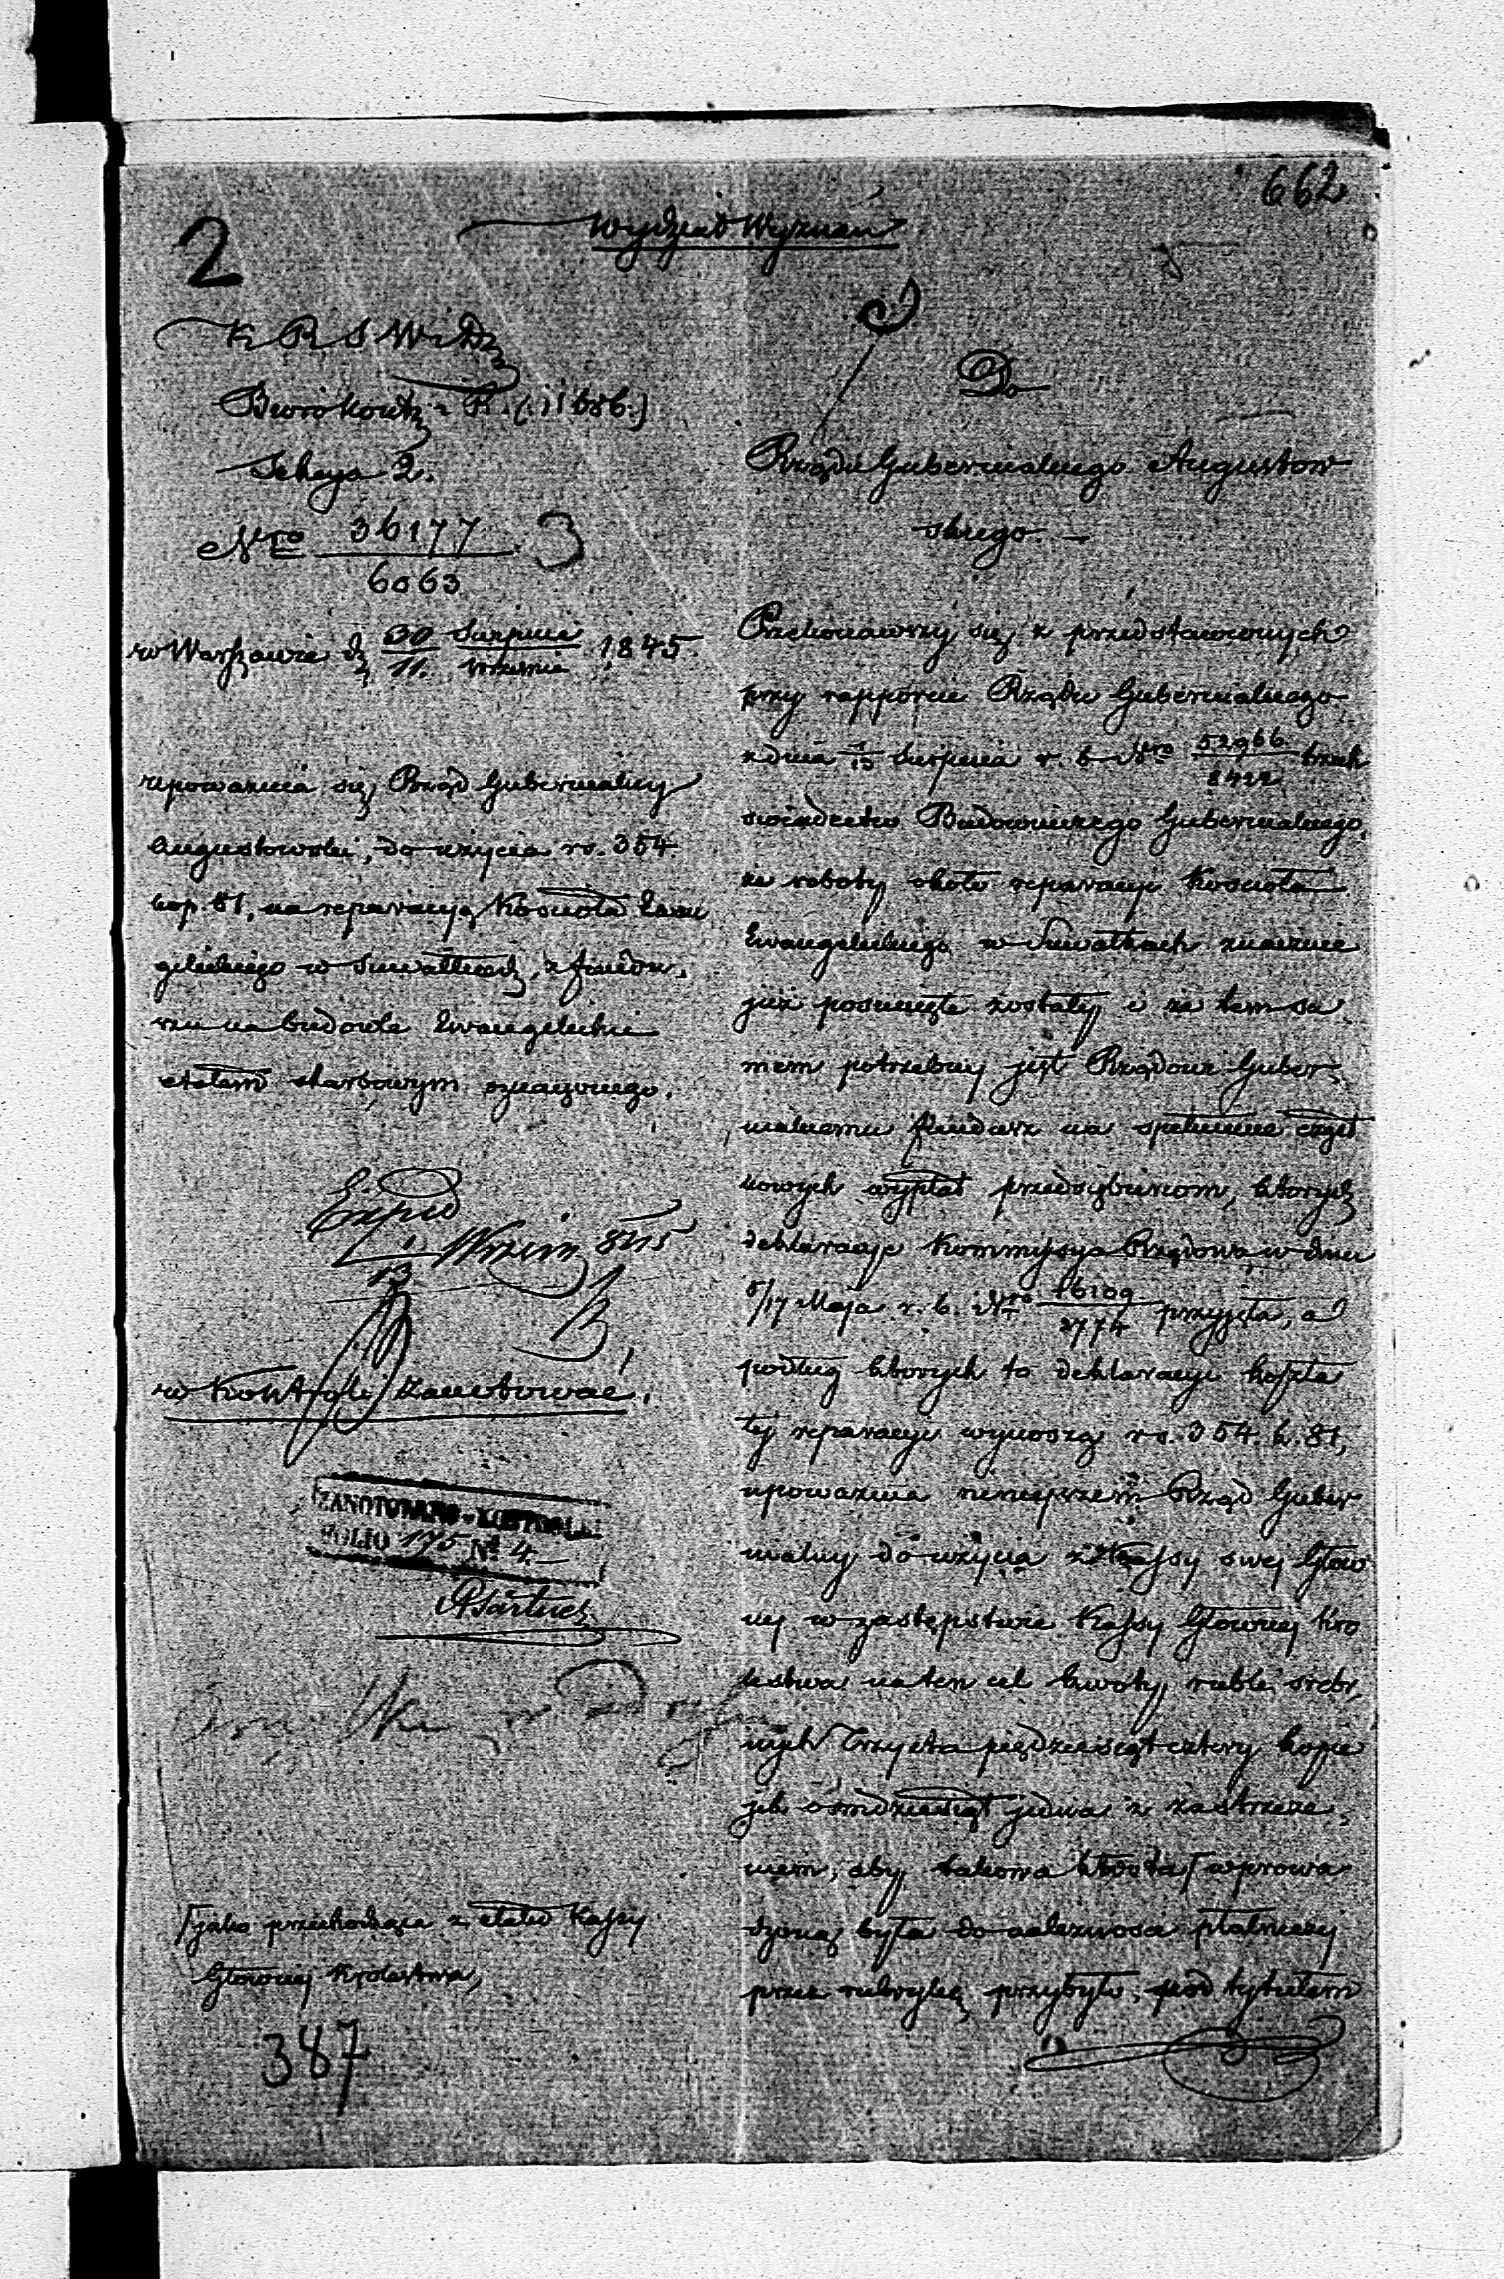 662
Wydział Wyznań
2
K R S W i D
Sekcya 2.
Nro 36177 / 6063 3
w Warszawie d. 30 Sierpnia / 11. Września 1845.
upoważnia się Rząd Gubernialny
Augustowski, do użycia rs. 354
kop. 81, na reparacyą Kościoła Ewan
gelickiego w Suwałkach, z fundu
szu na budowle Ewangelickie
etatem skarbowym oznaczonego.
Exped
1/13 Wrześn 845
w Kontroli zanotować.
ZANOTOWANO w KONTROLLI
FOLIO 175 Nr 4
[jako przechodząca z etatu Kassy
Głównej Królestwa,
387
Do
Rządu Gubernialnego Augustow
skiego.
Przekonawszy się z przedstawionych
przy rapporcie Rządu Gubernialnego
z dnia 1/13 Sierpnia r. b. Nro 52966 / 2422
świadectw Budowniczego Gubernialnego,
że roboty około reparacyi Kościoła
Ewangelickiego w Suwałkach znacznie
już posunięte zostały i że tem sa
mem potrzebny jest Rządowi Guber
nialnemu fundusz na spełnienie cząst
kowych wypłat przedsiębiercom, których
deklaracye Kommissya Rządowa w dniu
5/17 Maja r. b. Nro 16109 / 2774 przyjęła, a
podług których to deklaracyi koszta
tej reparacyi wynoszą rs. 354. k. 81,
upoważnia niniejszem Rząd Guber
nialny do użycia z Kassy swej Głów
nej w zastępstwie Kassy Głównej Kró
lestwa na ten cel kwoty rubli srebr
nych Trzysta pięćdziesiąt cztery kopie
jek ośmdziesiąt jedna z zastrzeże
niem, aby takowa kwota [wprowa
dzoną była do należności
przez rubrykę przybyło, pod tytułem